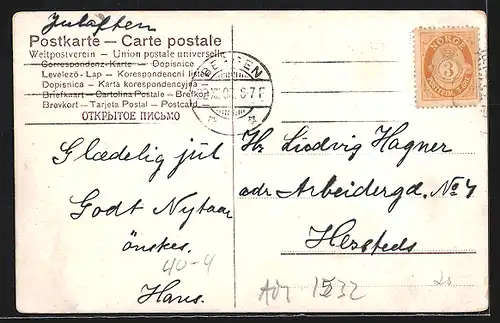 Julaften
Postkarte — Carte postale
Weltpostverein — Union postale universelle
Correspondenz-Karte — Dopisnice
Levelező-Lap — Korespondencni listek
Dopisnica — Karta korespondencyjna
Briefkaart — Cartolina Postale — Brefkort
Brevkort — Tarjeta Postal — Postcard
ОТКРЫТОЕ ПИСЬМО
BERGEN
6-7 F
NORGE
3
Glædelig jul
Godt Nytaar
ønskes.
40-4
Hans.
Hr. Ludvig Hagner
adr Arbeidergd. No 4
Ada 1532
20